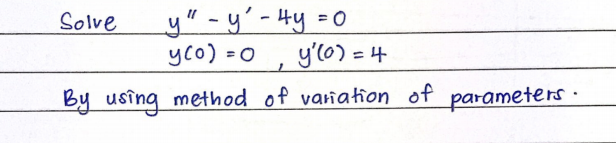 Solve y'' - y' - 4y = 0
y(0) = 0 , y'(0) = 4
By using method of variation of parameters.